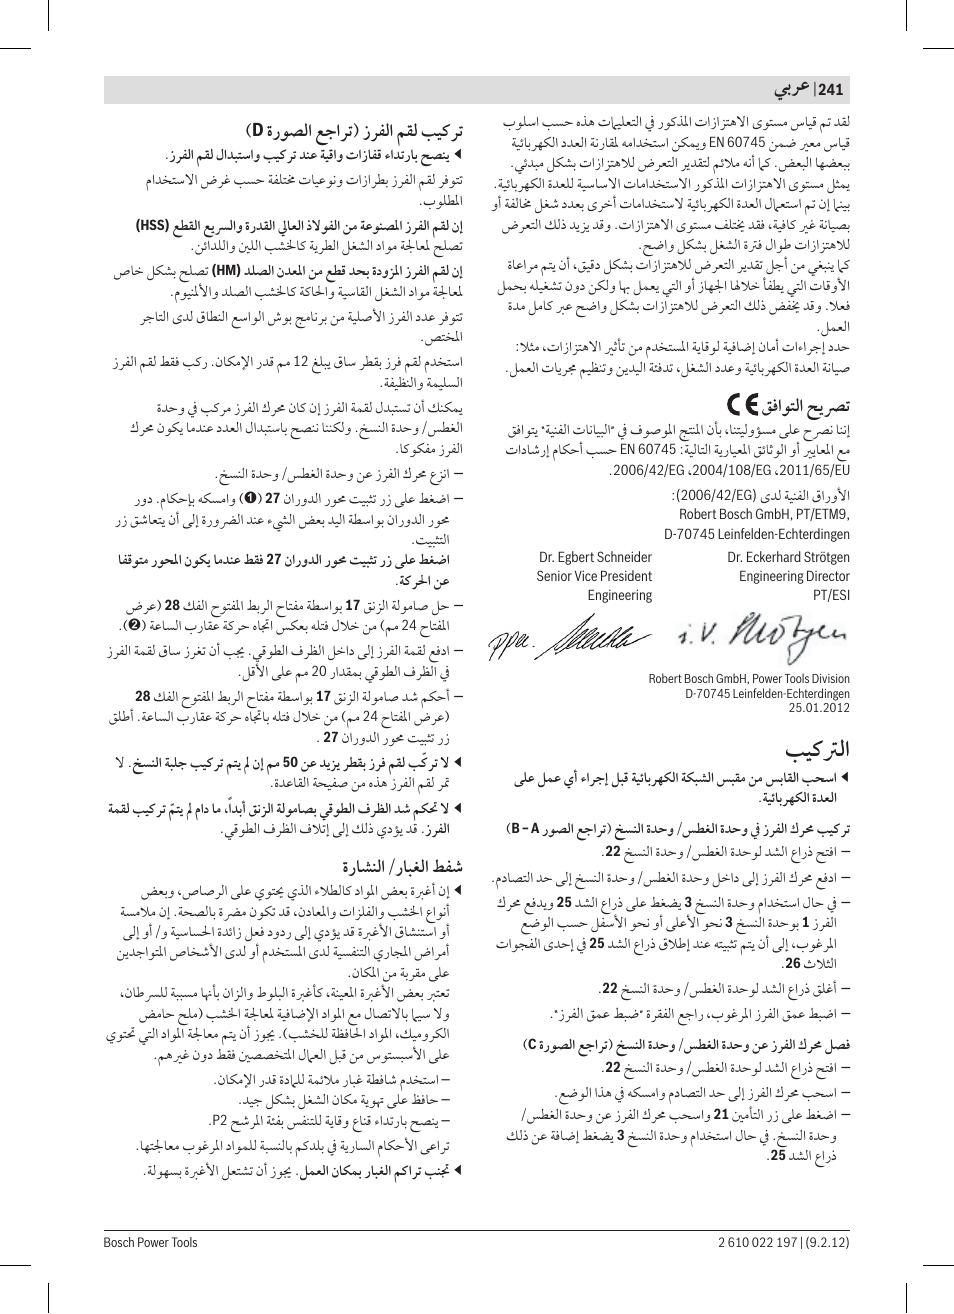 عربي | 241
لقد تم قياس مستوى الاهتزازات المذكور في التعليمات هذه حسب اسلوب
قياس معير ضمن EN 60745 ويمكن استخدامه لمقارنة العدد الكهربائية
ببعضها البعض. كما أنه ملائم لتقدير التعرض للاهتزازات بشكل مبدئي.
يمثل مستوى الاهتزازات المذكور الاستخدامات الاساسية للعدة الكهربائية.
بينما إن تم استعمال العدة الكهربائية لاستخدامات أخرى بعدد شغل مخالفة أو
بصيانة غير كافية، فقد يختلف مستوى الاهتزازات. وقد يزيد ذلك التعرض
للاهتزازات طوال فترة الشغل بشكل واضح.
كما ينبغي من أجل تقدير التعرض للاهتزازات بشكل دقيق، أن يتم مراعاة
الأوقات التي يطفأ خلالها الجهاز أو التي يعمل بها ولكن دون تشغيله بحمل
فعلا. وقد يخفض ذلك التعرض للاهتزازات بشكل واضح عبر كامل مدة
العمل.
حدد إجراءات أمان إضافية لوقاية المستخدم من تأثير الاهتزازات، مثلا:
صيانة العدة الكهربائية وعدد الشغل، تدفئة اليدين وتنظيم مجريات العمل.
تصريح التوافق CE
إننا نصرح على مسؤوليتنا، بأن المنتج الموصوف في "البيانات الفنية" يتوافق
مع المعايير أو الوثائق المعيارية التالية: EN 60745 حسب أحكام إرشادات
2011/65/EU، 2004/108/EG، 2006/42/EG.
الأوراق الفنية لدى (2006/42/EG):
Robert Bosch GmbH, PT/ETM9,
D-70745 Leinfelden-Echterdingen
Dr. Egbert Schneider Dr. Eckerhard Strötgen
Senior Vice President Engineering Director
Engineering PT/ESI
ppa. i.V. Strötgen
Robert Bosch GmbH, Power Tools Division
D-70745 Leinfelden-Echterdingen
25.01.2012
التركيب
◀ اسحب القابس من مقبس الشبكة الكهربائية قبل إجراء أي عمل على
العدة الكهربائية.
تركيب محرك الفرز في وحدة الغطس/ وحدة النسخ (تراجع الصور A – B)
– افتح ذراع الشد لوحدة الغطس/ وحدة النسخ 22.
– ادفع محرك الفرز إلى داخل وحدة الغطس/ وحدة النسخ إلى حد التصادم.
– في حال استخدام وحدة النسخ 3 يضغط على ذراع الشد 25 ويدفع محرك
الفرز 1 بوحدة النسخ 3 نحو الأعلى أو نحو الأسفل حسب الوضع
المرغوب، إلى أن يتم تثبيته عند إطلاق ذراع الشد 25 في إحدى الفجوات
الثلاث 26.
– أغلق ذراع الشد لوحدة الغطس/ وحدة النسخ 22.
– اضبط عمق الفرز المرغوب، راجع الفقرة "ضبط عمق الفرز".
فصل محرك الفرز عن وحدة الغطس/ وحدة النسخ (تراجع الصورة C)
– افتح ذراع الشد لوحدة الغطس/ وحدة النسخ 22.
– اسحب محرك الفرز إلى حد التصادم وامسكه في هذا الوضع.
– اضغط على زر التأمين 21 واسحب محرك الفرز عن وحدة الغطس/
وحدة النسخ. في حال استخدام وحدة النسخ 3 يضغط إضافة عن ذلك
ذراع الشد 25.
تركيب لقم الفرز (تراجع الصورة D)
◀ ينصح بارتداء قفازات واقية عند تركيب واستبدال لقم الفرز.
تتوفر لقم الفرز بطرازات ونوعيات مختلفة حسب غرض الاستخدام
المطلوب.
إن لقم الفرز المصنوعة من الفولاذ العالي القدرة والسريع القطع (HSS)
تصلح لمعالجة مواد الشغل الطرية كالخشب اللين واللدائن.
إن لقم الفرز المزودة بحد قطع من المعدن الصلد (HM) تصلح بشكل خاص
لمعالجة مواد الشغل القاسية والحاكة كالخشب الصلد والألمنيوم.
تتوفر عدد الفرز الأصلية من برنامج بوش الواسع النطاق لدى التاجر
المختص.
استخدم لقم فرز بقطر ساق يبلغ 12 مم قدر الإمكان. ركب فقط لقم الفرز
السليمة والنظيفة.
يمكنك أن تستبدل لقمة الفرز إن كان محرك الفرز مركب في وحدة
الغطس/ وحدة النسخ. ولكننا ننصح باستبدال العدد عندما يكون محرك
الفرز مفكوكا.
– انزع محرك الفرز عن وحدة الغطس/ وحدة النسخ.
– اضغط على زر تثبيت محور الدوران 27 (❶) وامسكه بإحكام. دور
محور الدوران بواسطة اليد بعض الشيء عند الضرورة إلى أن يتعاشق زر
التثبيت.
اضغط على زر تثبيت محور الدوران 27 فقط عندما يكون المحور متوقفا
عن الحركة.
– حل صامولة الزنق 17 بواسطة مفتاح الربط المفتوح الفك 28 (عرض
المفتاح 24 مم) من خلال فتله بعكس اتجاه حركة عقارب الساعة (❷).
– ادفع لقمة الفرز إلى داخل الظرف الطوقي. يجب أن تغرز ساق لقمة الفرز
في الظرف الطوقي بمقدار 20 مم على الأقل.
– أحكم شد صامولة الزنق 17 بواسطة مفتاح الربط المفتوح الفك 28
(عرض المفتاح 24 مم) من خلال فتله باتجاه حركة عقارب الساعة. أطلق
زر تثبيت محور الدوران 27 .
◀ لا تركّب لقم فرز بقطر يزيد عن 50 مم إن لم يتم تركيب جلبة النسخ. لا
تمر لقم الفرز هذه من صفيحة القاعدة.
◀ لا تحكم شد الظرف الطوقي بصامولة الزنق أبداً، ما دام لم يتمّ تركيب لقمة
الفرز. قد يؤدي ذلك إلى إتلاف الظرف الطوقي.
شفط الغبار/ النشارة
◀ إن أغبرة بعض المواد كالطلاء الذي يحتوي على الرصاص، وبعض
أنواع الخشب والفلزات والمعادن، قد تكون مضرة بالصحة. إن ملامسة
أو استنشاق الأغبرة قد يؤدي إلى ردود فعل زائدة الحساسية و/ أو إلى
أمراض المجاري التنفسية لدى المستخدم أو لدى الأشخاص المتواجدين
على مقربة من المكان.
تعتبر بعض الأغبرة المعينة، كأغبرة البلوط والزان بأنها مسببة للسرطان،
ولا سيما بالاتصال مع المواد الإضافية لمعالجة الخشب (ملح حامض
الكروميك، المواد الحافظة للخشب). يجوز أن يتم معالجة المواد التي تحتوي
على الأسبستوس من قبل العمال المتخصصين فقط دون غيرهم.
– استخدم شافطة غبار ملائمة للمادة قدر الإمكان.
– حافظ على تهوية مكان الشغل بشكل جيد.
– ينصح بارتداء قناع وقاية للتنفس بفئة المرشح P2.
تراعى الأحكام السارية في بلدكم بالنسبة للمواد المرغوب معالجتها.
◀ تجنب تراكم الغبار بمكان العمل. يجوز أن تشتعل الأغبرة بسهولة.
Bosch Power Tools 2 610 022 197 | (9.2.12)